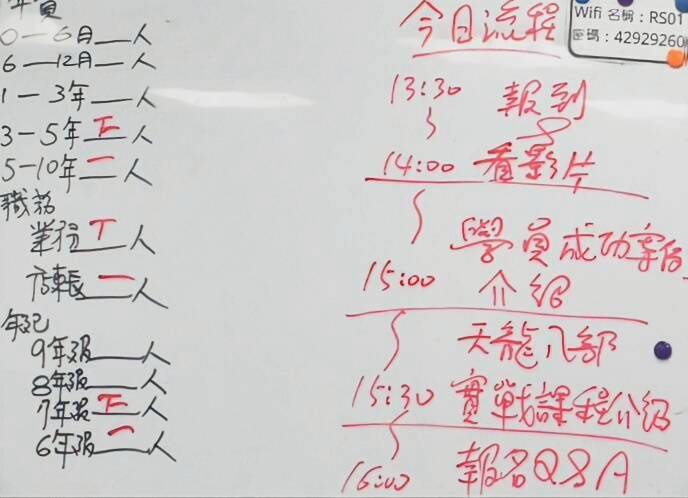 年資
0—6月__人
6—12月__人
1—3年__人
3-5年下人
5-10年一人
職務
業務丅人
店長一人
年紀
9年級__人
8年級__人
7年級下人
6年級一人
今日流程
13:30 報到
14:00 看影片
學員成功案例
15:00 介紹
天龍八部
15:30 實戰課程介紹
16:00 報名Q&A
Wifi 名稱:RS01
密碼:42929260